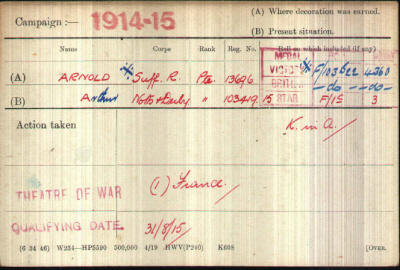 Campaign :— 1914-15
(A) Where decoration was earned.
(B) Present situation.
Name Corps Rank Reg. No. Roll on which included (if any)
MEDAL
(A) ARNOLD Suff. R. Pte. 13696 VICTORY F/103B22 4360
BRITISH —do— —do—
(B) Arthur Notts & Derby " 103419 15 STAR F/15 3
Action taken K. in A.
THEATRE OF WAR (1) France.
QUALIFYING DATE. 31/8/15
(6 34 46) W234—HP5590 500,000 4/19 HWV(P240) K608 [OVER.